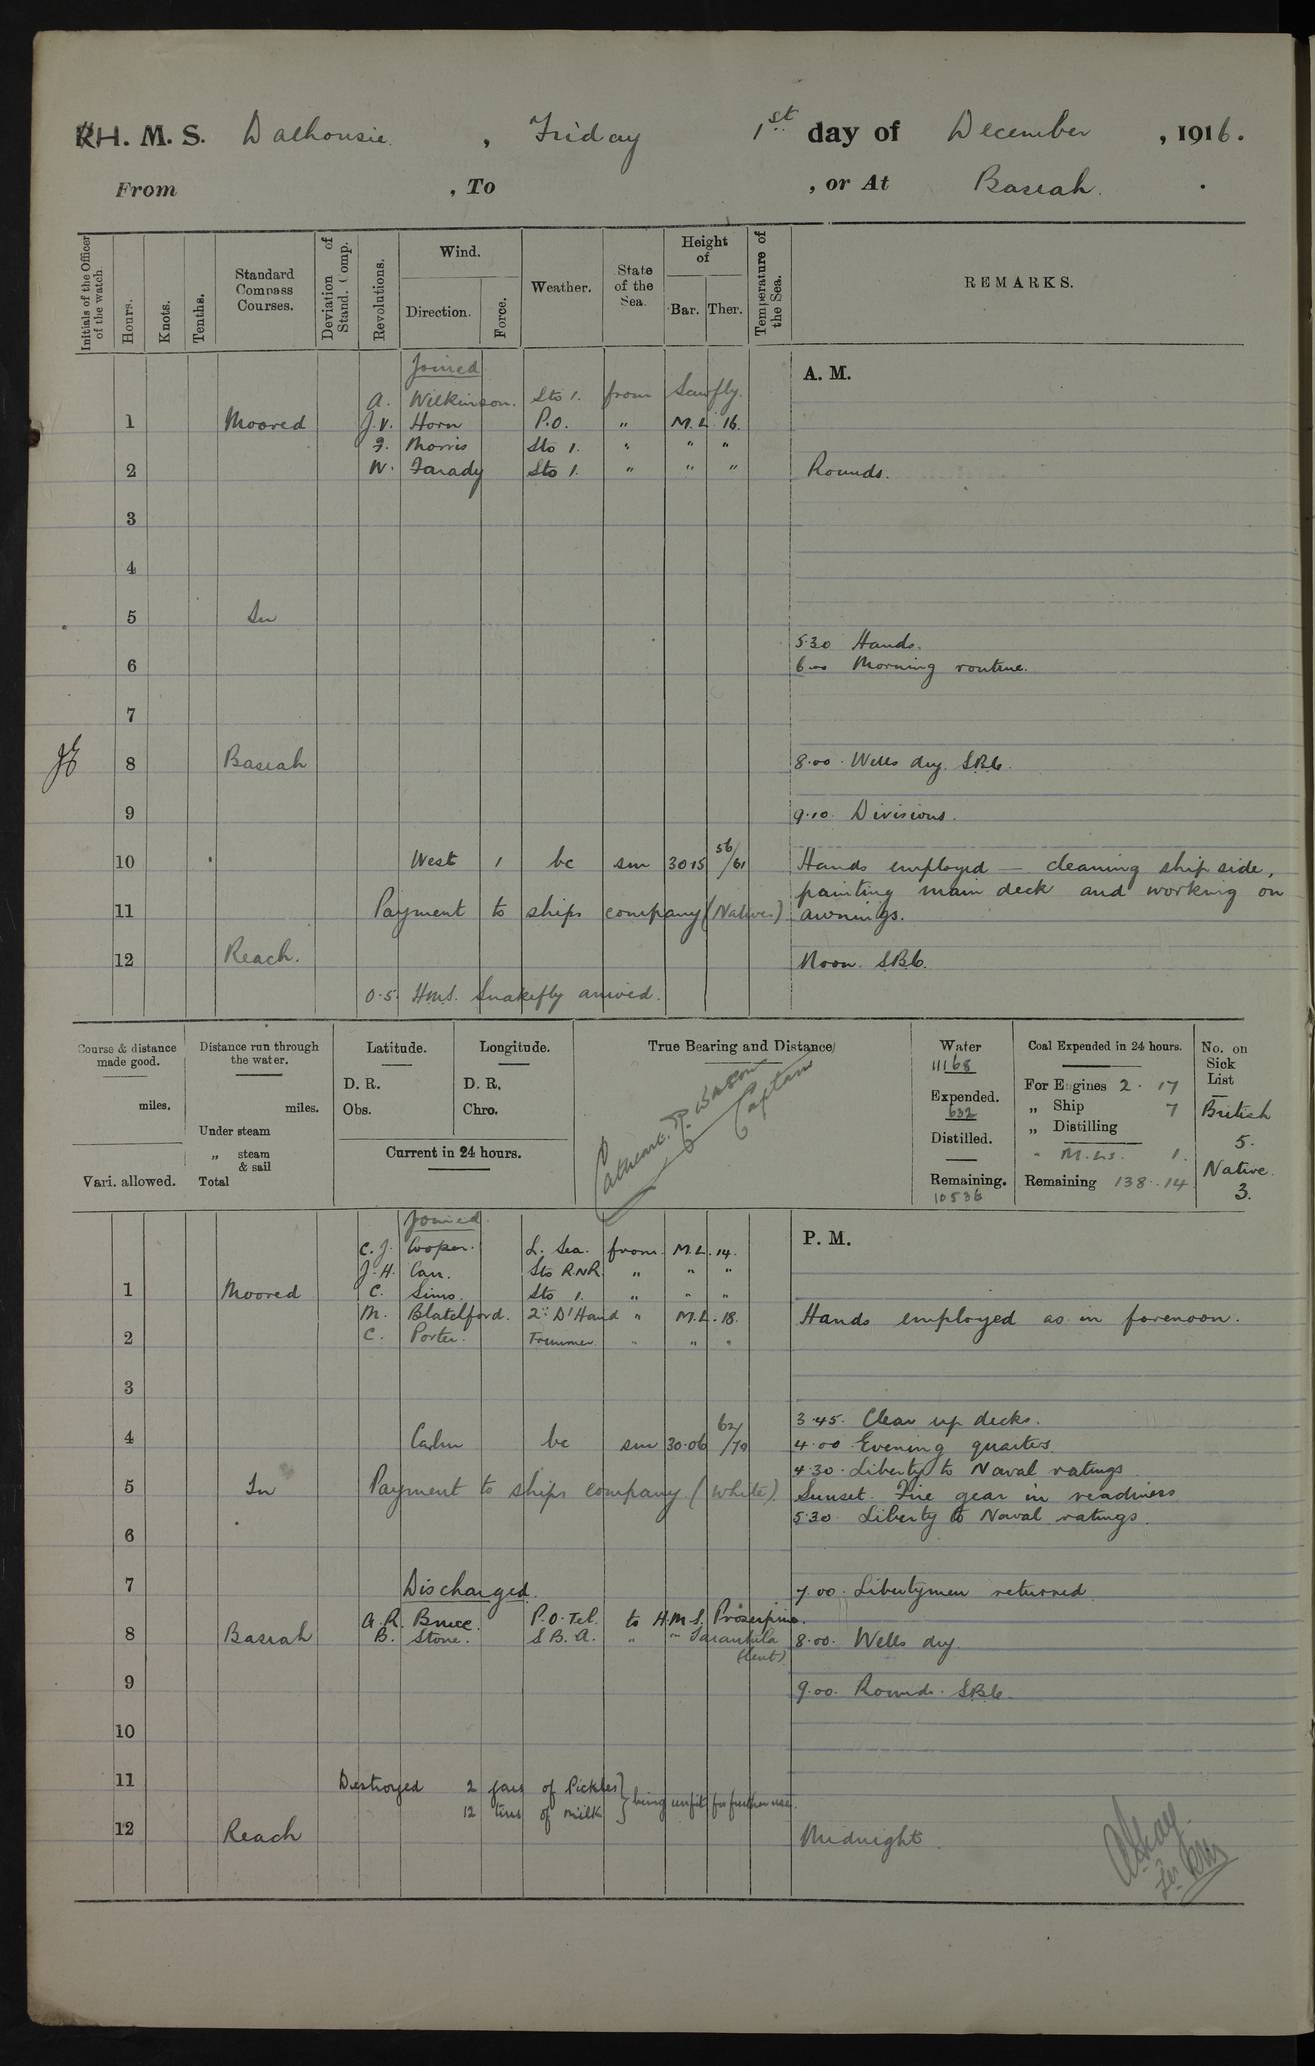 H. M. S. Dalhousie , Friday 1st day of December , 1916.
From , To , or At Basrah .
Initials of the Officer of the watch.
Hours.
Knots.
Tenths.
Standard Compass Courses.
Deviation of Stand. Comp.
Revolutions.
Wind.
Direction.
Force.
Weather.
State of the Sea.
Height of
Bar. Ther.
Temperature of the Sea.
REMARKS.
Joined
A. M.
A. Wilkinson. Sto 1. from Sawfly.
1 Moored J.V. Horn P.O. " M.L. 16.
F. Morris Sto 1. " " "
2 W. Farady Sto 1. " " " Rounds.
3
4
5 In
5.30 Hands.
6 6.00 Morning routine.
7
8 Basrah 8.00 Wells dry. SBC.
9 9.10 Divisions.
10 West 1 bc sm 30 15 56/61 Hands employed — cleaning ship side,
painting main deck and working on
11 Payment to ships company (Natives) awnings.
12 Reach. Noon. SBC.
0.5. H.M.S. Snakefly arrived.
Course & distance made good.
miles.
Vari. allowed.
Distance run through the water.
miles.
Under steam
„ steam & sail
Total
Latitude.
D. R.
Obs.
Longitude.
D. R.
Chro.
Current in 24 hours.
True Bearing and Distance
Captain
Water
11168
Expended.
632
Distilled.
Remaining.
10536
Coal Expended in 24 hours.
For Engines 2 . 17
„ Ship 7
„ Distilling
" M.Ls. 1.
Remaining 138 . 14
No. on Sick List
British
5.
Native.
3.
Joined
P. M.
C. J. Cooper. L. Sea. from M.L. 14.
J. H. Carr. Sto R.N.R. " " "
1 Moored C. Sims. Sto 1. " " "
M. Blatchford. 2nd D'Hand " M.L. 18. Hands employed as in forenoon.
2 C. Porter. Trimmer. " " "
3
3.45. Clear up decks.
4 Calm bc sm 30.06 62/70 4.00 Evening quarters.
4.30. Liberty to Naval ratings
5 In Payment to ships company (White) Sunset. Fire gear in readiness
5.30 Liberty to Naval ratings.
6
7 Discharged. 7.00. Libertymen returned
A. R. Bruce. P.O. Tel. to H.M.S. Proserpine.
8 Basrah B. Stone. S.B.A. " " Tarantula 8.00. Wells dry.
(Lent)
9 9.00. Rounds. SBC.
10
11 Destroyed 2 jars of Pickles } being unfit for further use.
12 tins of milk
12 Reach Midnight.